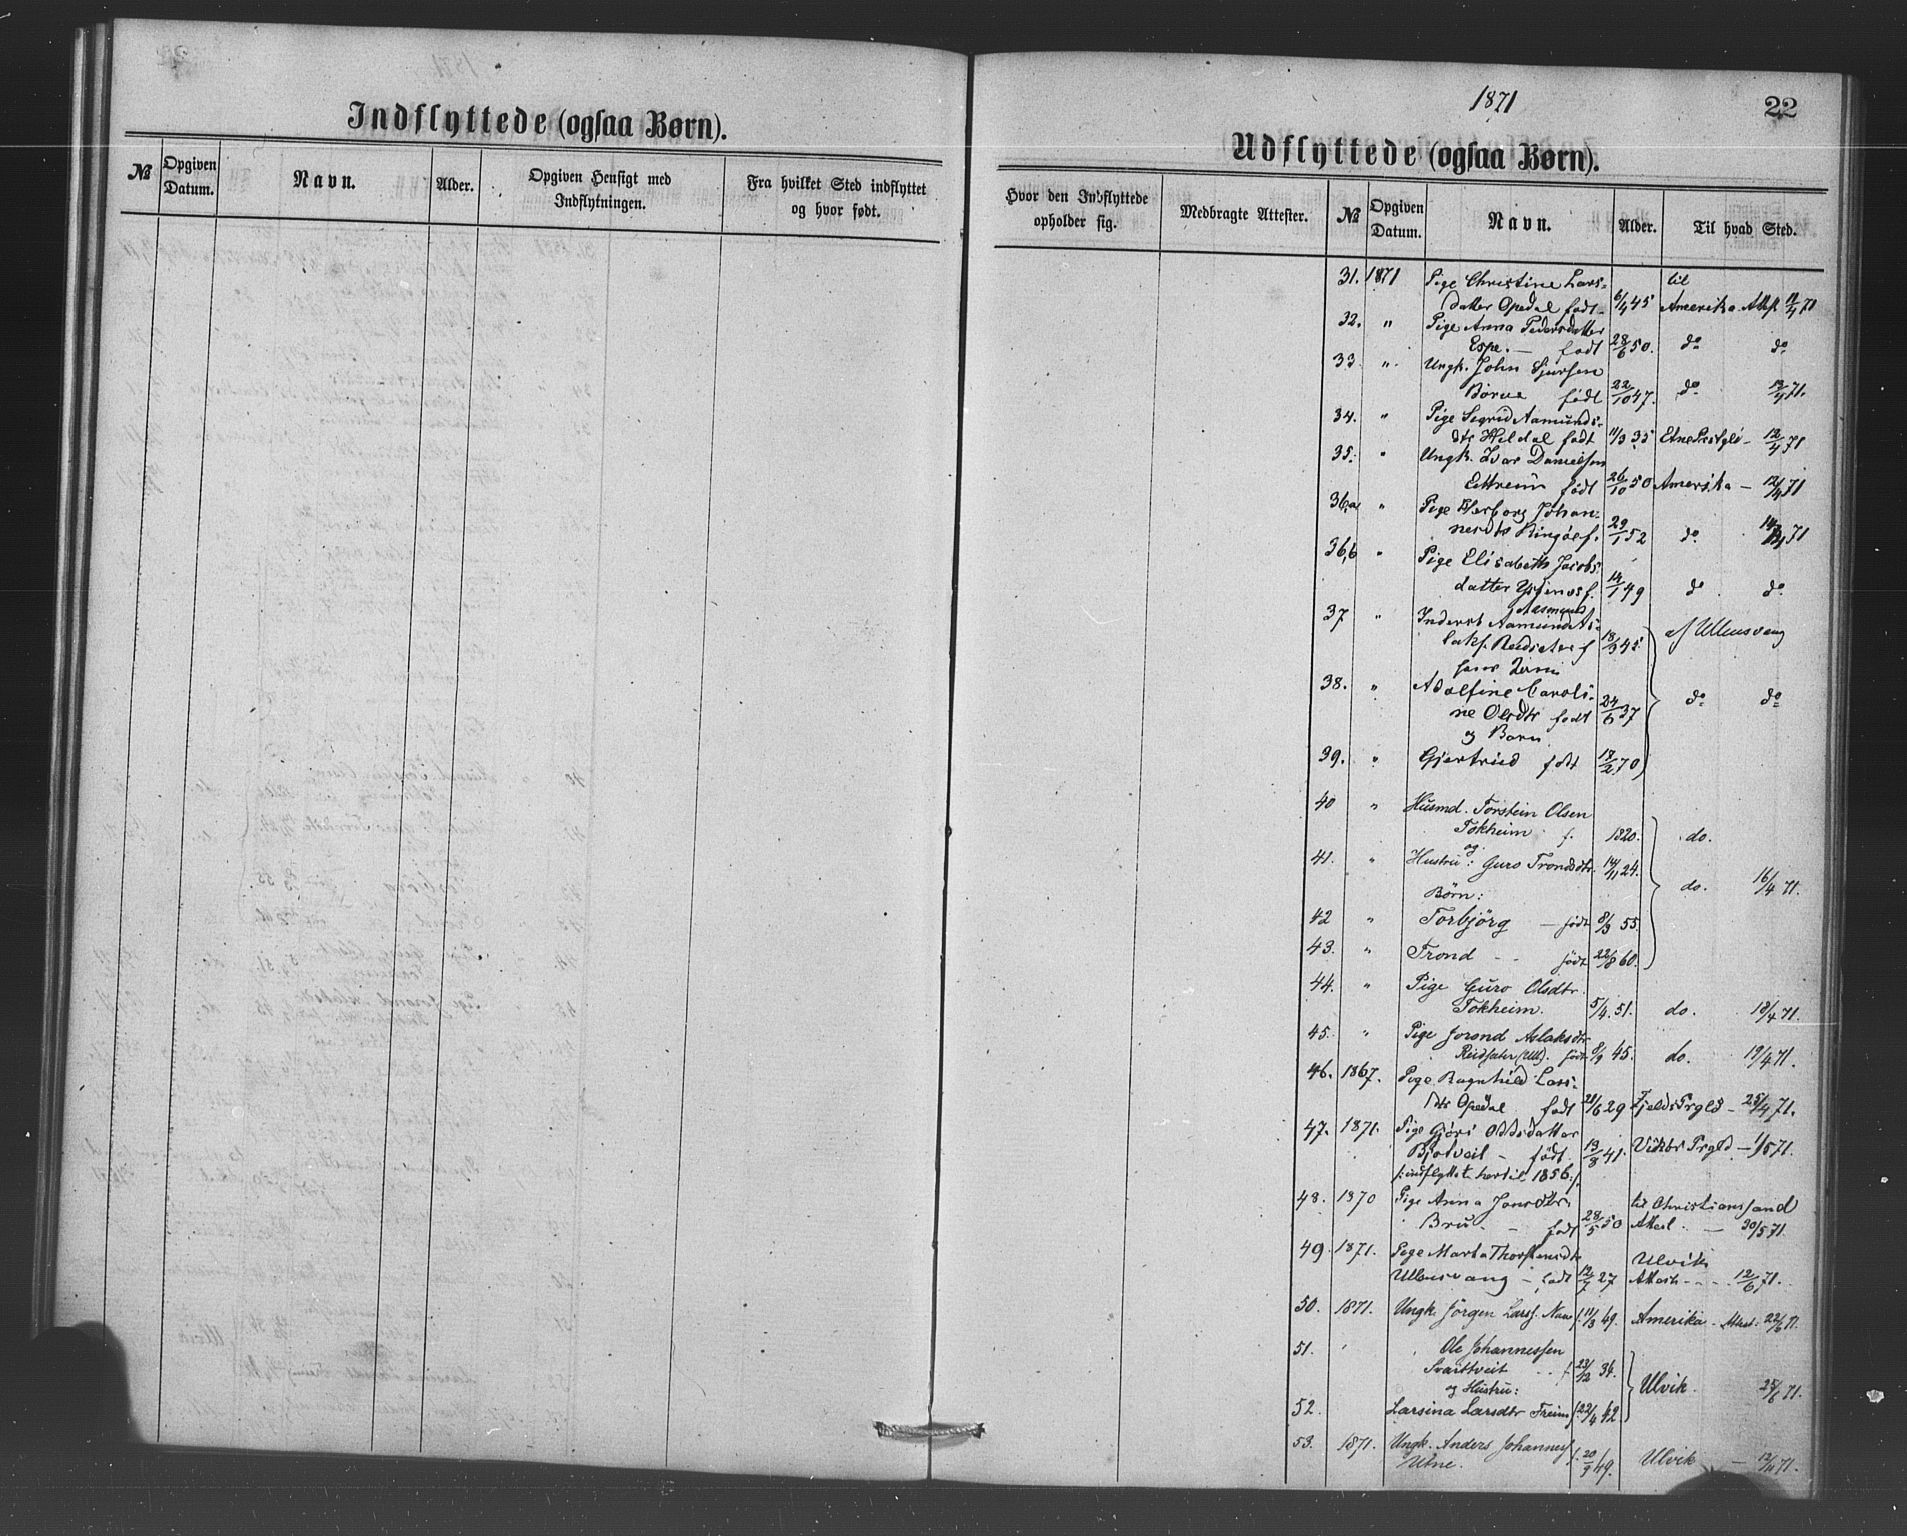 Indflyttede (ogsaa Børn).
№
Opgiven Datum.
Navn.
Alder.
Opgiven Hensigt med Indflytningen.
Fra hvilket Sted indflyttet og hvor født.
1871
22
Udflyttede (ogsaa Børn).
Hvor den Indflyttede opholder sig.
Medbragte Attester.
№
Opgiven Datum.
Navn.
Alder.
Til hvad Sted.
31. 1871 Pige Christine Lars- til
datter Opedal født 6/4 45 Amerika. Att. 11/4 71
32. " Pige Anna Pedersdatter
Espe. — født 28/6 50. do do
33. " Ungk. John Sjursen
Børve født 22/10 47. do 12/4 71.
34. " Pige Sigrid Aamunds-
dtr Hildal født 11/3 35 Etne Prestgld — 12/4 71
35. " Ungk. Ivar Danielsen
Eitreim født 26/10 50 Amerika — 12/4 71
36,a " Pige Herborg Johan-
nesdtr Ringøe f. 29/1 52 do 71
36,b " Pige Elisabeth Jacobs-
datter f. 14/1 49 do. do.
37 " Inderst Aamund As- Aasmund
laks. Reisæter f 18/3 45 af Ullensvang
hans
38. " Adolfine Caroli-
ne Olsdtr født 24/6 37 do do
og Barn
39. " Gjertrud født 17/2 70
40 " Husmd. Torstein Olsen
Tokheim f. 1820. do.
og
41. " Hustru: Guro Trondsdtr. 14/11 24.
Børn: do. 16/4 71.
42 " Torbjörg — født 8/3 55.
43. " Trond - - født 22/8 60.
44. " Pige Guro Olsdtr.
Tokheim. 5/4. 51. do. 18/4 71.
45. " Pige Jorond Aslaksdtr
Reisæter (Ull). født 8/9 45. do. 19/4 71.
46. 1867. Pige Ragnhild Lars-
dtr Opedal født 21/6 29 Fjelds Prgld — 25/4 71.
47. 1871. Pige Gjøri Oddsdatter
Bjotveit — født 13/8 41. Vikørs Prgld — 1/5 71.
/: indflyttet hertil 1856 :/
48. 1870 Pige Anna Jonsdtr til Christianssand
Bru - - født 28/5 50 Attest. — 30/5 71.
49. 1871. Pige Marta Thorsteinsdtr Ulvik
Ullensvang — født 12/7 27 Attest - - - 12/6 71.
50. 1871. Ungk. Jörgen Larss. f. 11/3 49. Amerika - Attest: 22/6 71.
51. Ole Johannessen
Svartveit - - f. 23/12 36.
og Hustru: Ulvik. 25/6 71.
52. Larsina Larsdtr Freim f. 22/4 42.
53. 1871. Ungk. Anders Johanness
Utne. f. 20/9 49. Ulvik — 12/11 71.